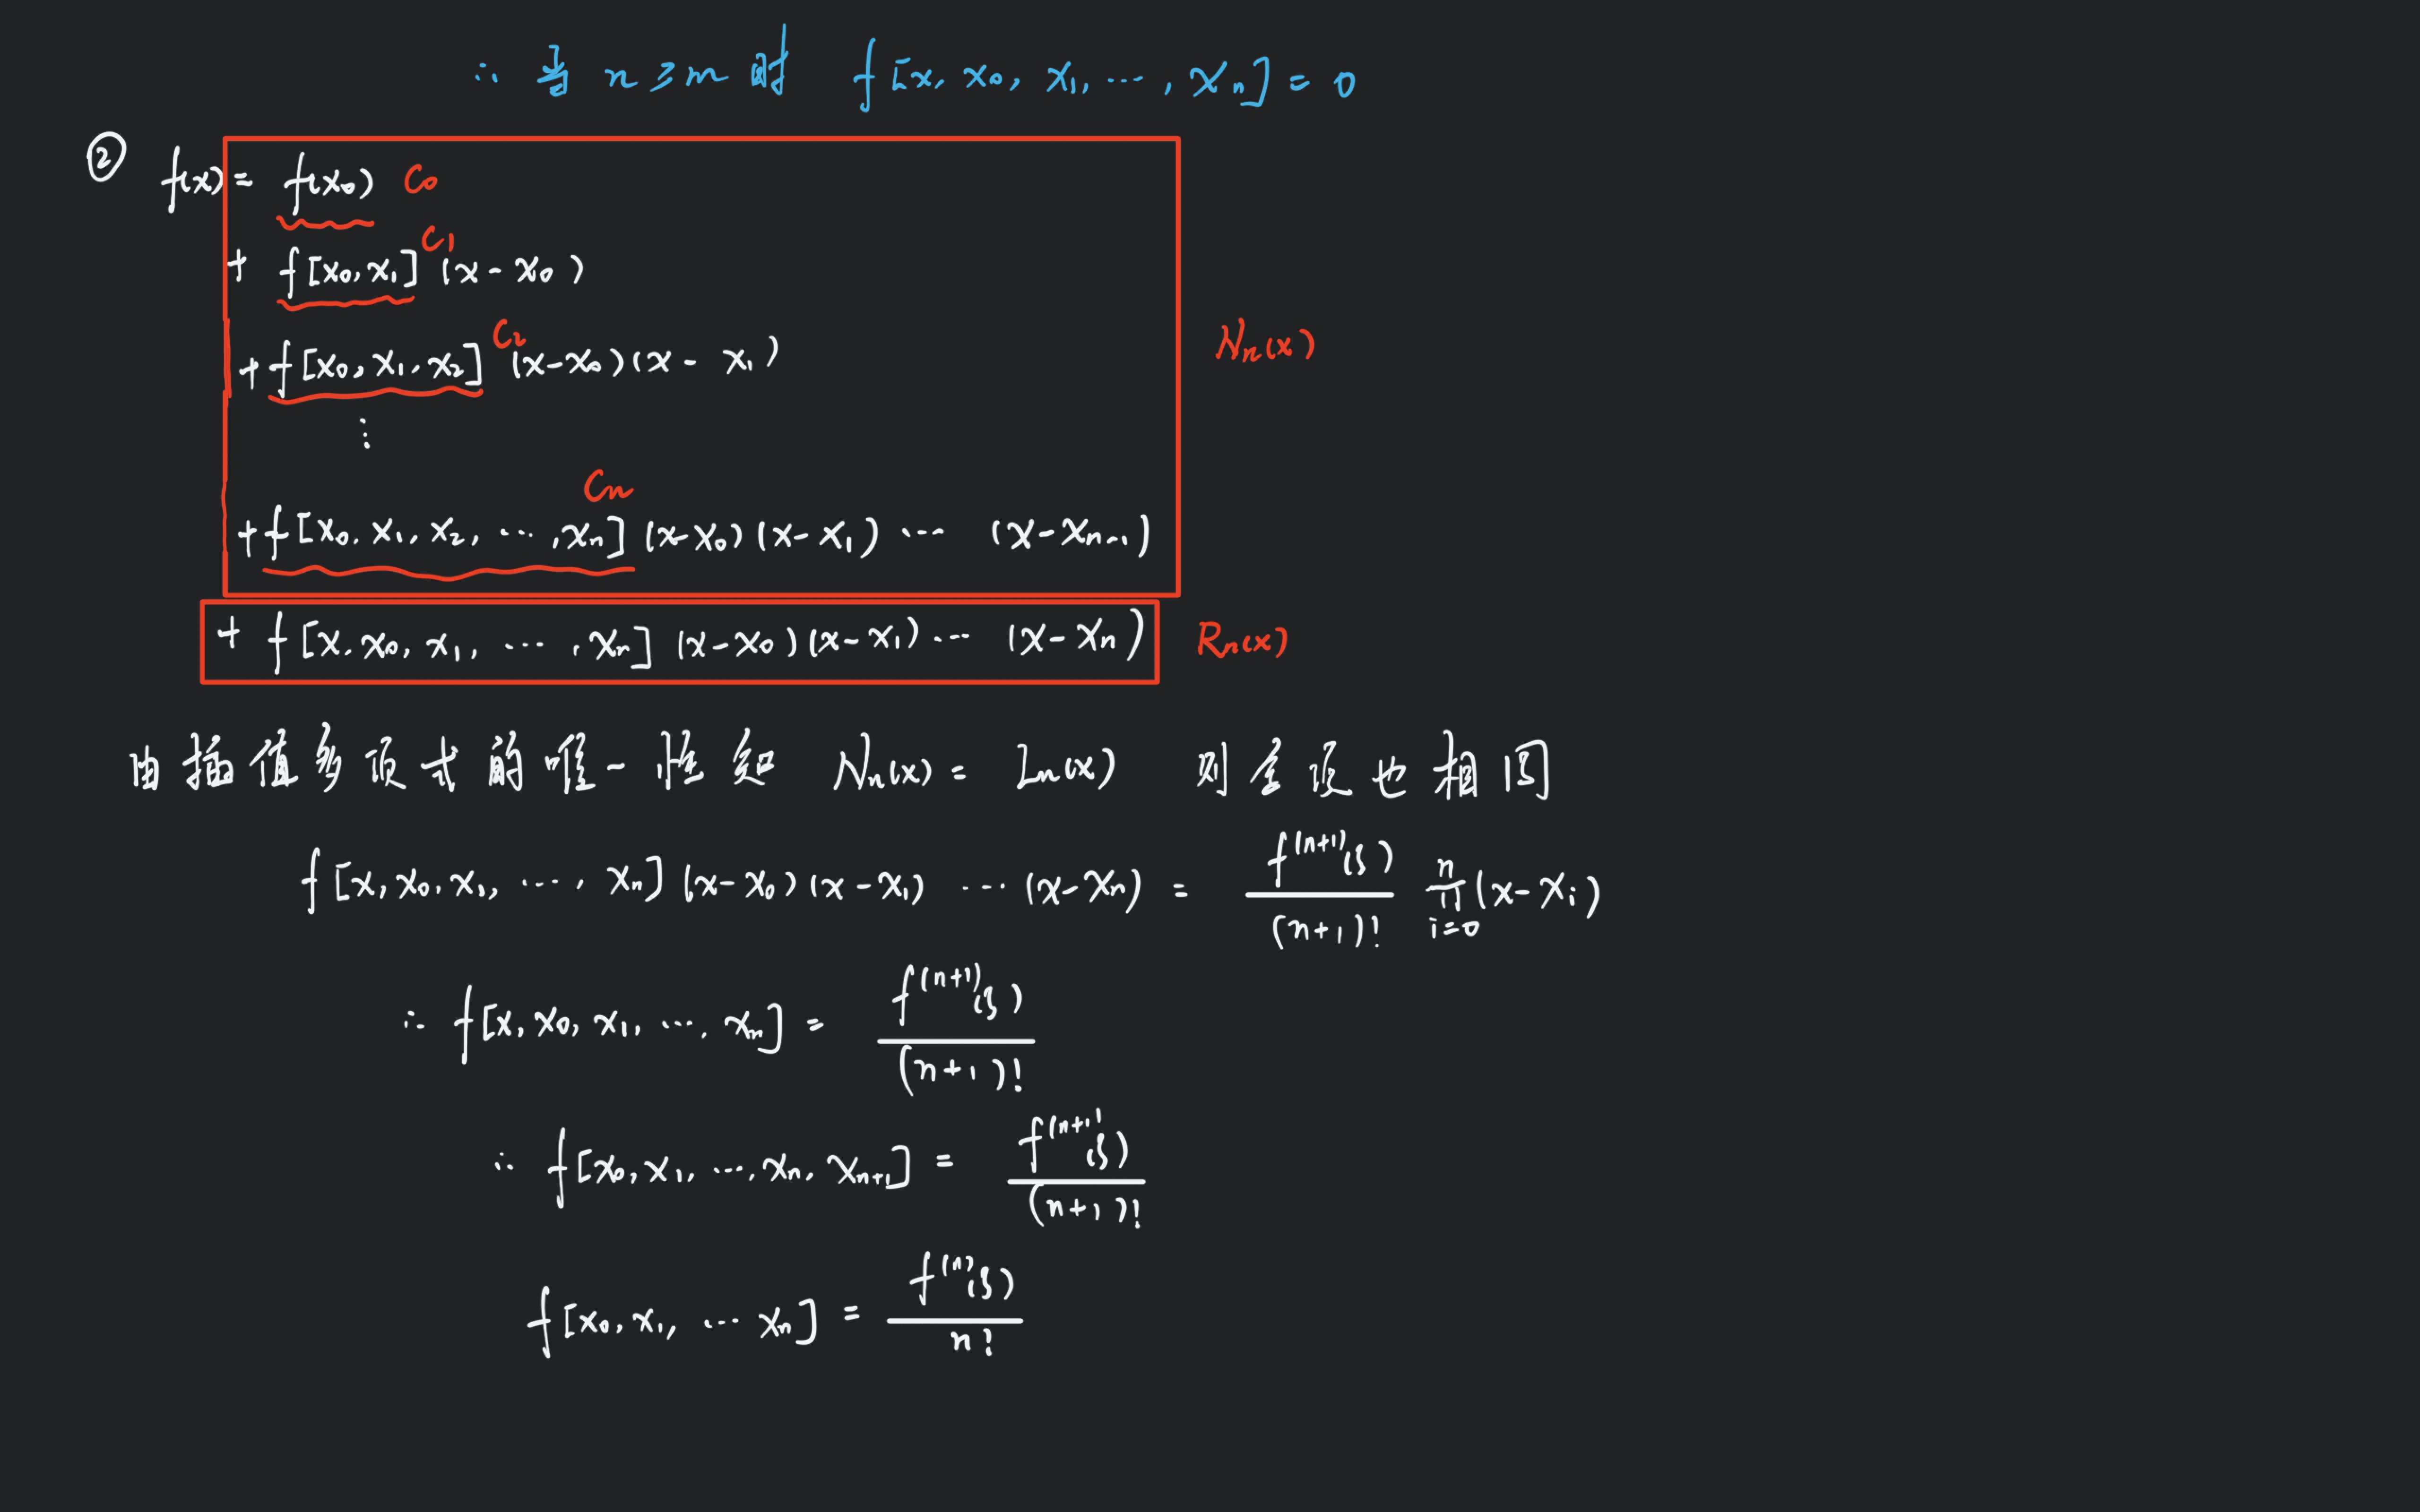 ∴ 当 n ≥ m 时 f[x, x₀, x₁, …, xₙ] = 0
② f(x) = f(x₀) C₀
+ f[x₀, x₁] C₁ (x - x₀)
+ f[x₀, x₁, x₂] C₂ (x - x₀)(x - x₁) Nₙ(x)
⋮
+ f[x₀, x₁, x₂, …, xₙ] Cₙ (x - x₀)(x - x₁) … (x - xₙ₋₁)
+ f[x, x₀, x₁, …, xₙ] (x - x₀)(x - x₁) … (x - xₙ) Rₙ(x)
由插值多项式的唯一性知 Nₙ(x) = Lₙ(x) 则余项也相同
f[x, x₀, x₁, …, xₙ] (x - x₀)(x - x₁) … (x - xₙ) = f⁽ⁿ⁺¹⁾(ξ) / (n+1)! ∏ⁿᵢ₌₀ (x - xᵢ)
∴ f[x, x₀, x₁, …, xₙ] = f⁽ⁿ⁺¹⁾(ξ) / (n+1)!
∴ f[x₀, x₁, …, xₙ, xₙ₊₁] = f⁽ⁿ⁺¹⁾(ξ) / (n+1)!
f[x₀, x₁, … xₙ] = f⁽ⁿ⁾(ξ) / n!